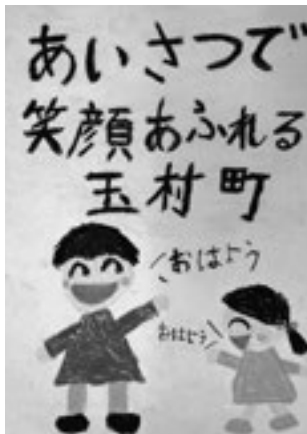 あいさつで
笑顔あふれる
玉村町
おはよう
おはよう